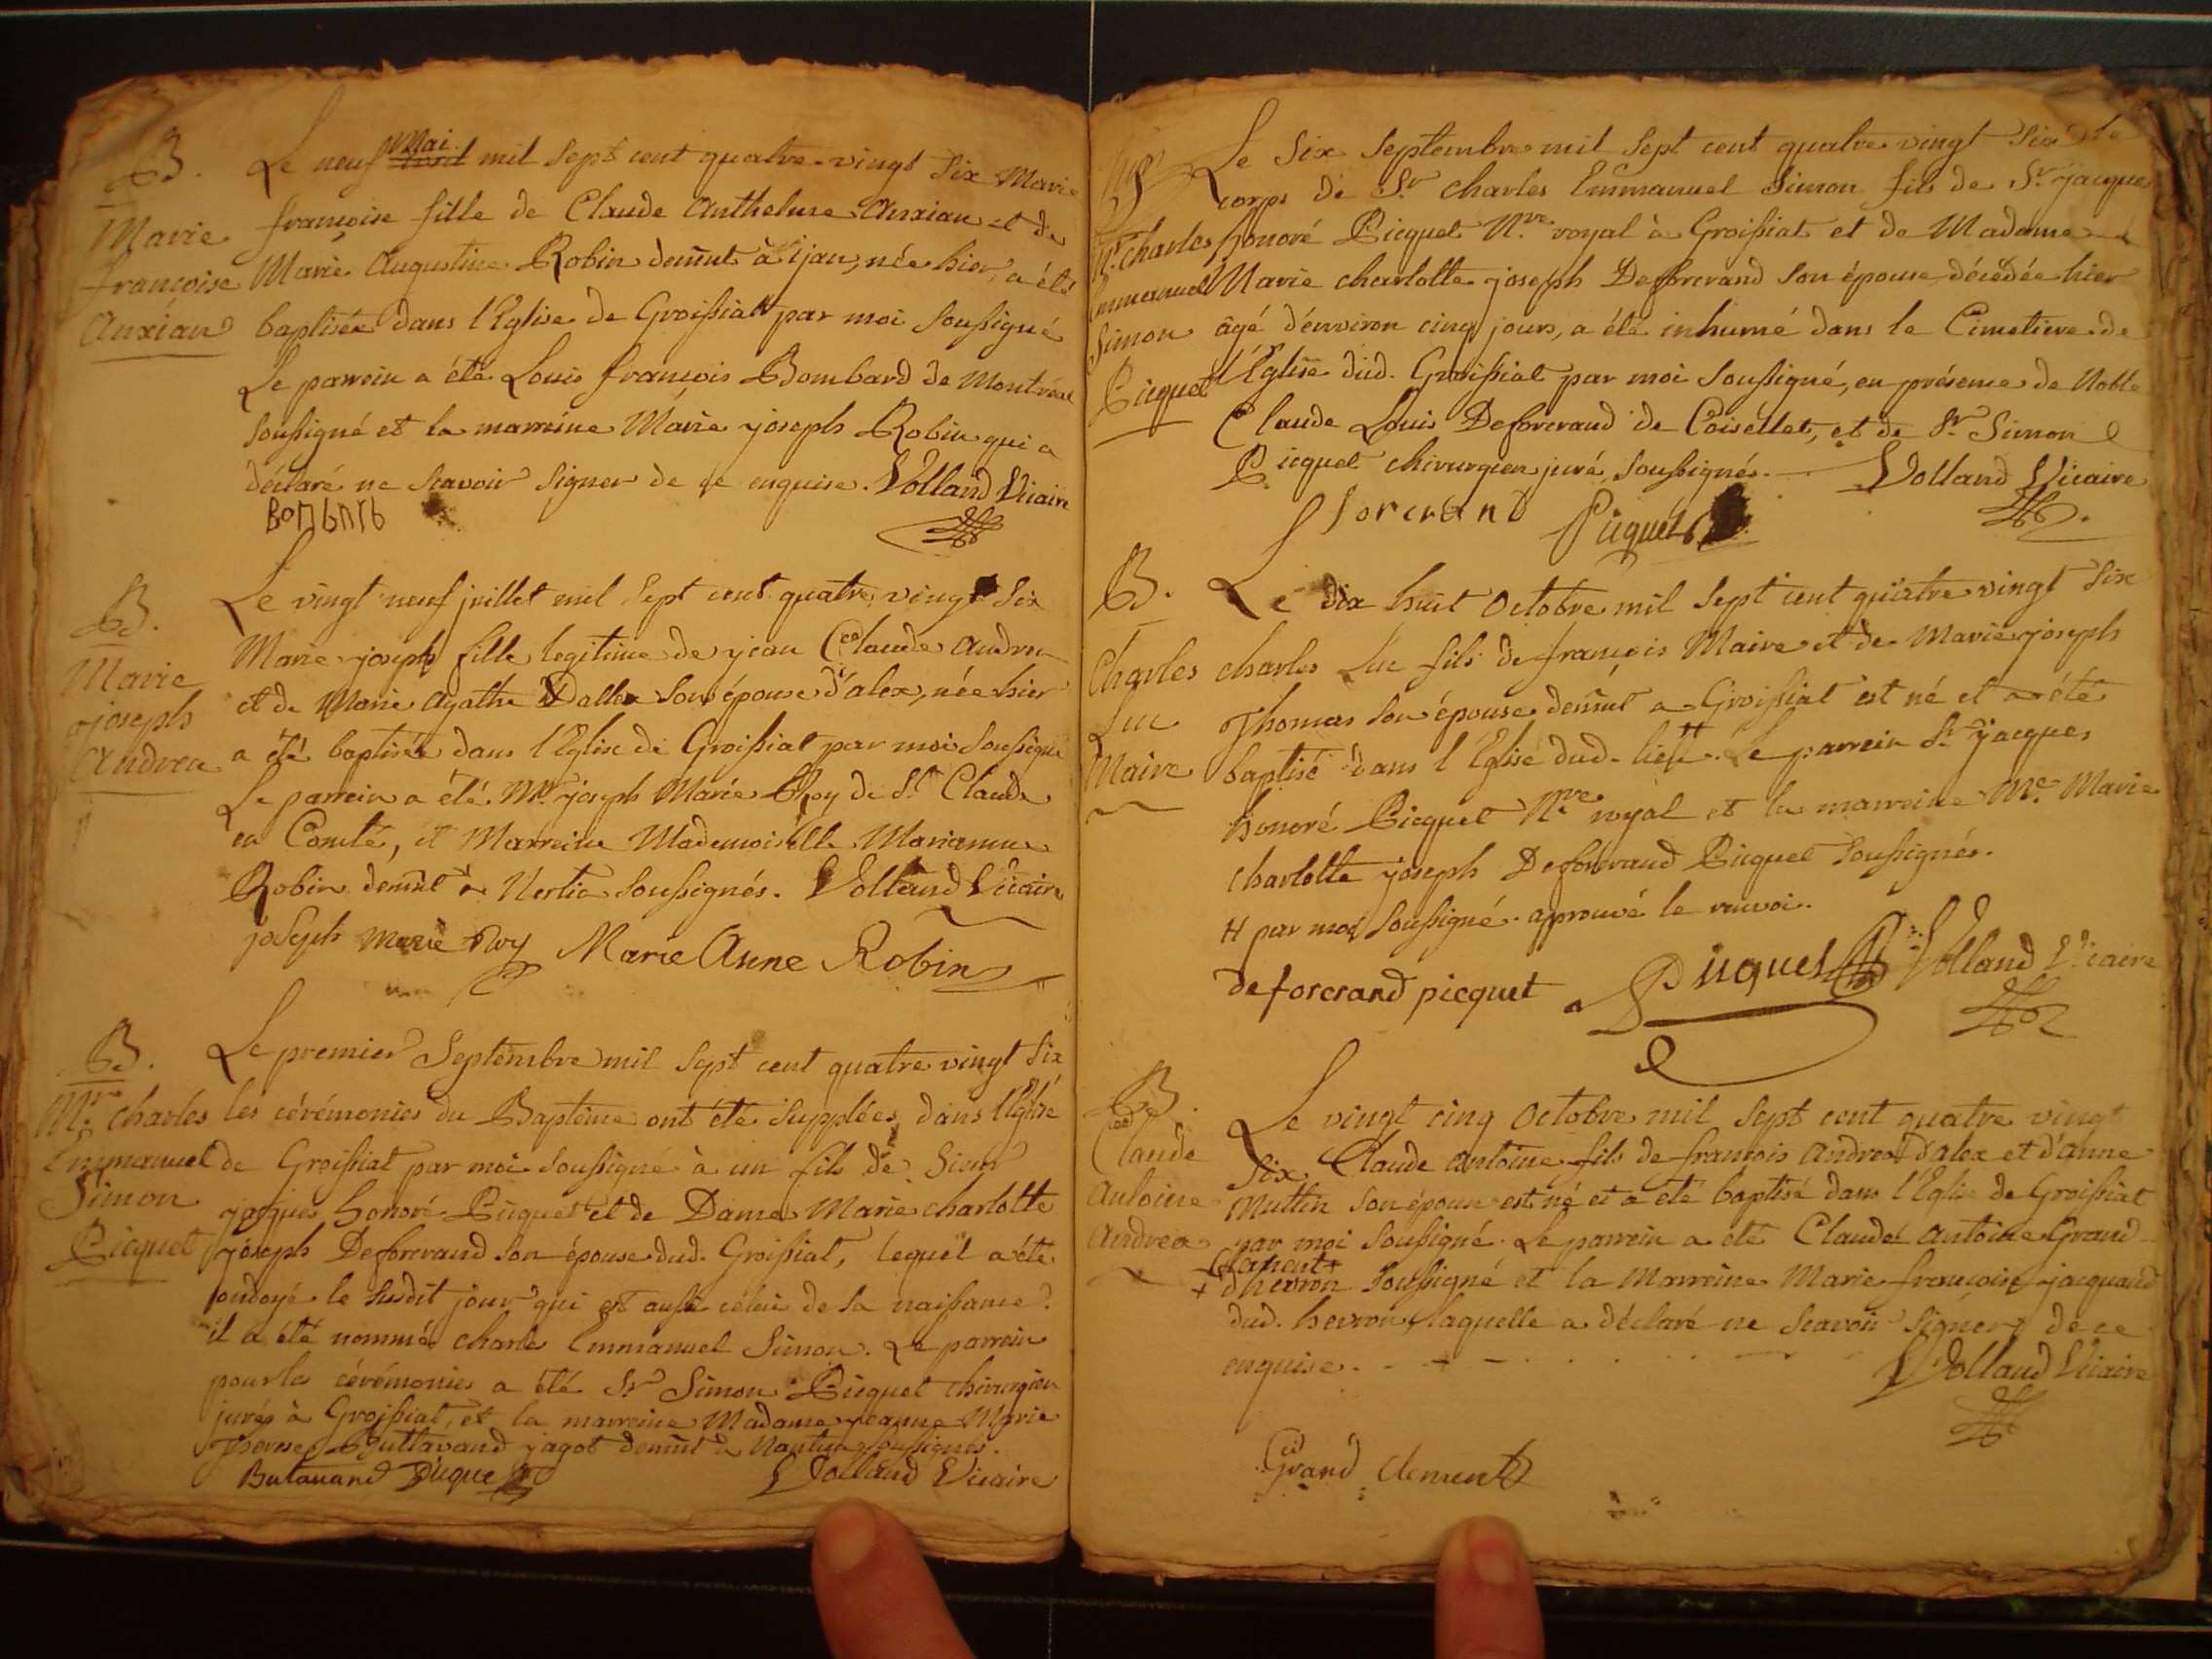 B.
Marie
françoise
Anxian
Le neuf avril mai mil sept cent quatre-vingt six Marie
françoise fille de Claude Anthelme Anxian et de
Marie Augustine Robin demt à ijan, née hier, a été
baptisée dans l'Eglise de Groissiat par moi soussigné
Le parrein a été Louis françois Bombard de Montréal
soussigné et la marreine Marie joseph Robin qui a
déclaré ne scavoir signer de ce enquise. Volland Vicaire
B.
Marie
joseph
Andrea
Le vingt neuf juillet mil sept cent quatre vingt six
Marie joseph fille legitime de jean Claude Andrea
et de Marie Agathe Dallex son épouse d'alex, née hier
a été baptisée dans l'Eglise de Groissiat par moi soussigné
Le parrein a été Mr joseph Marie Roy de St Claude
en Comté, et Marreine Mademoiselle Marianne
Robin demt à Nertia soussignés. Volland Vicaire
joseph marie Roy Marie Anne Robin
B.
Mr. Charles
Emmanuel
Simon
Picquet
Le premier Septembre mil sept cent quatre vingt six
les cérémonies du Baptême ont été supplées dans l'Eglise
de Groissiat par moi soussigné à un fils de Sieur
jacques honoré Picquet et de Dame Marie charlotte
joseph Deforcrand son épouse dud. Groissiat, lequel a été
ondoyé le susdit jour qui est aussi celui de sa naissance.
il a été nommé charle Emmanuel Simon. Le parrein
pour les cérémonies a été Sr Simon Picquet chirurgien
juré à Groissiat, et la marreine Madame jeanne Marie
Therese Buttavand jagot demt à Nantua soussignés.
Butavand Picquet Volland Vicaire
Mr. Charles
Emmanuel
Simon
Picquet
Le six Septembre mil sept cent quatre vingt six le
corps de Sr charles Emmanuel Simon fils de Sr jacques
honoré Picquet Nre royal à Groissiat et de Madame
Marie charlotte joseph Deforcrand son épouse décédée hier
âgé d'environ cinq jours, a été inhumé dans le Cimetiere de
l'Eglise dud. Groissiat par moi soussigné, en présence de Noble
Claude Louis Deforcrand de Coisellet, et de Sr Simon
Picquet chirurgien juré soussignés. Volland Vicaire
forcrand Picquet
B.
Charles
Luc
Maire
Le dix huit Octobre mil sept cent quatre vingt six
charles Luc fils de françois Maire et de Marie joseph
Thomas son épouse demt a Groissiat est né et a été
baptisé dans l'Eglise dud. lieu H. Le parrein Sr jacques
honoré Picquet Nre royal et la marreine Me. Marie
charlotte joseph Deforcrand Picquet soussignés.
H par moi soussigné. aprouvé le renvoi.
deforcrand picquet Picquet Volland Vicaire
B.
Claude
Antoine
Andrea
Le vingt cinq Octobre mil sept cent quatre vingt
six Claude Antoine fils de francois Andrea d'alex et d'anne
Muttin son épouse est né et a été baptisé dans l'Eglise de Groissiat
par moi soussigné. Le parrein a été Claude Antoine Grand
Clement +
+ d'hevron soussigné et la Marreine Marie françoise jacquand
dud. hevron, laquelle a déclaré ne scavoir signer, de ce
enquise. Volland Vicaire
Grand clement